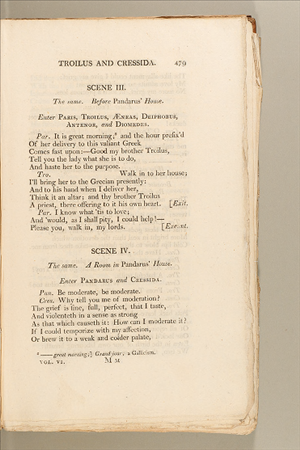 TROILUS AND CRESSIDA. 479
SCENE III.
The same. Before Pandarus' House.
Enter PARIS, TROILUS, ÆNEAS, DEIPHOBUS,
ANTENOR, and DIOMEDES.
Par. It is great morning;⁸ and the hour prefix'd
Of her delivery to this valiant Greek
Comes fast upon:—Good my brother Troilus,
Tell you the lady what she is to do,
And haste her to the purpose.
Tro. Walk in to her house;
I'll bring her to the Grecian presently:
And to his hand when I deliver her,
Think it an altar; and thy brother Troilus
A priest, there offering to it his own heart. [Exit.
Par. I know what 'tis to love;
And 'would, as I shall pity, I could help!—
Please you, walk in, my lords. [Exeunt.
SCENE IV.
The same. A Room in Pandarus' House.
Enter PANDARUS and CRESSIDA.
Pan. Be moderate, be moderate.
Cres. Why tell you me of moderation?
The grief is fine, full, perfect, that I taste,
And violenteth in a sense as strong
As that which causeth it: How can I moderate it?
If I could temporize with my affection,
Or brew it to a weak and colder palate,
⁸ —— great morning;] Grand jour; a Gallicism.
VOL. VI. M M